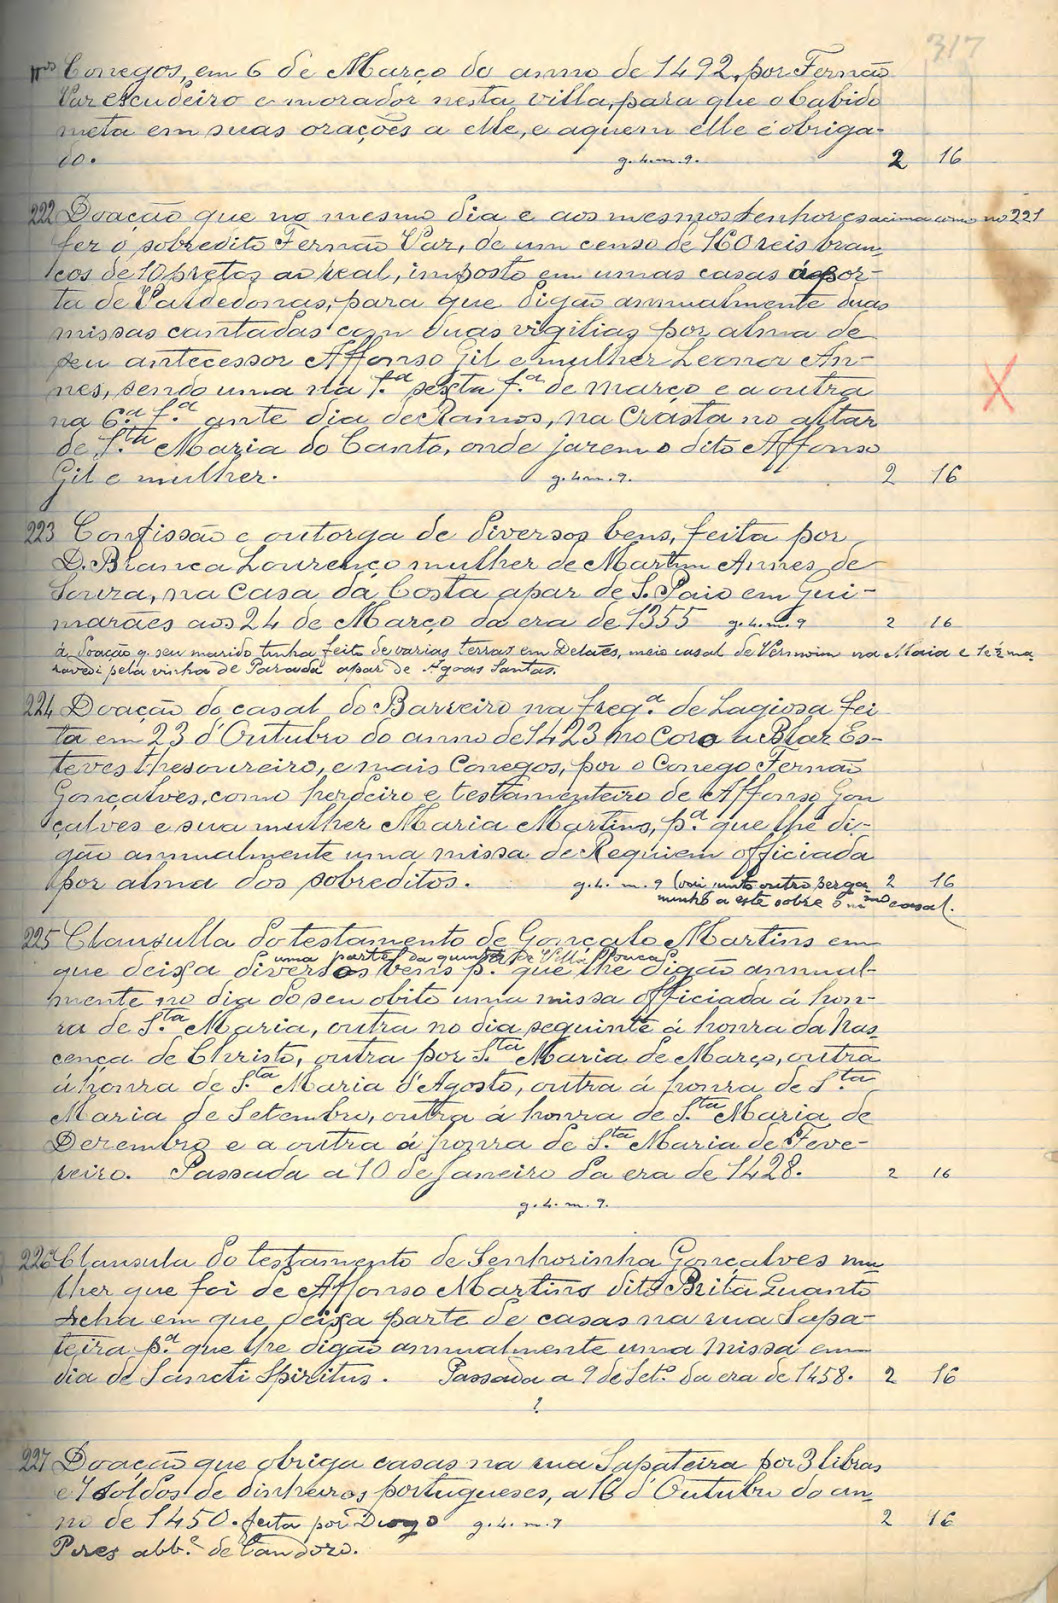 317
nos Conegos, em 6 de Março do anno de 1492, por Fernão
Vaz escudeiro e morador nesta villa, para que o Cabido
meta em suas orações a elle, e aquem elle é obriga-
do. g. 4. m. 9. 2 16
222 Doação que no mesmo dia e aos mesmos senhores acima como no 221
fez o sobredito Fernão Vaz, de um censo de 160 reis bran-
cos de 10 pretos ao real, imposto em umas casas á por-
ta de Valdedonas, para que digão annualmente duas
missas cantadas com duas vigilias por alma de
seu antecessor Affonso Gil e mulher Leonor An-
nes, sendo uma na 1.ª sexta f.ª de março e a outra
na 6.ª f.ª ante dia de Ramos, na Crasta no altar
de S.ta Maria do Canto, onde jazem o dito Affonso
Gil e mulher. g. 4. m. 9. 2 16
223 Confissão e outorga de diversos bens, feita por
D. Branca Lourenço mulher de Martim Annes de
Souza, na casa da Costa apar de S. Paio em Gui-
marães aos 24 de Março da era de 1355 g. 4. m. 9 2 16
á doação q. seu marido tinha feito de varias terras em Delães, meio casal de Vermoim na Maia e 1 e ½ ma-
ravedi pela vinha de Parada apar de Agoas Santas.
224 Doação do casal do Barreiro na freg.ª de Lagiosa fei
ta em 23 d'Outubro do anno de 1423 no Coro a Blaz Es-
teves thesoureiro, e mais Conegos, por o Conego Fernão
Gonçalves, como herdeiro e testamenteiro de Affonso Gon
çalves e sua mulher Maria Martins, p.ª que lhe di-
gão annualmente uma missa de Requiem officiada
por alma dos sobreditos. g. 4. m. 9 (vai unto outro perga 2 16
minho a este sobre o mmo casal.
225 Clausulla do testamento de Gonçalo Martins em
uma parte da quinta de Villa Pouca
que deixa diversos bens p.ª que lhe digão annual-
mente no dia do seu obito uma missa officiada á hon-
ra de S.ta Maria, outra no dia seguinte á honra da Nas
cença de Christo, outra por S.ta Maria de Março, outra
á honra de S.ta Maria d'Agosto, outra á honra de S.ta
Maria de Setembro, outra á honra de S.ta Maria de
Dezembro e a outra á honra de S.ta Maria de Feve-
reiro. Passada a 10 de Janeiro da era de 1428. 2 16
g. 4. m. 9.
226 Clausula do testamento de Senhorinha Gonçalves mu
lher que foi de Affonso Martins dito Brita Quanto
Acha em que deixa parte de casas na rua Sapa-
teira p.ª que lhe digão annualmente uma missa em
dia de Sancti Spiritus. Passada a 9 de Set.º da era de 1458. 2 16
?
227 Doação que obriga casas na rua Sapateira por 3 libras
e soldos de dinheiros portugueses, a 16 d'Outubro do an-
no de 1450. feita por Diogo g. 4. m. 9 2 16
Pires abb.e de Candozo.